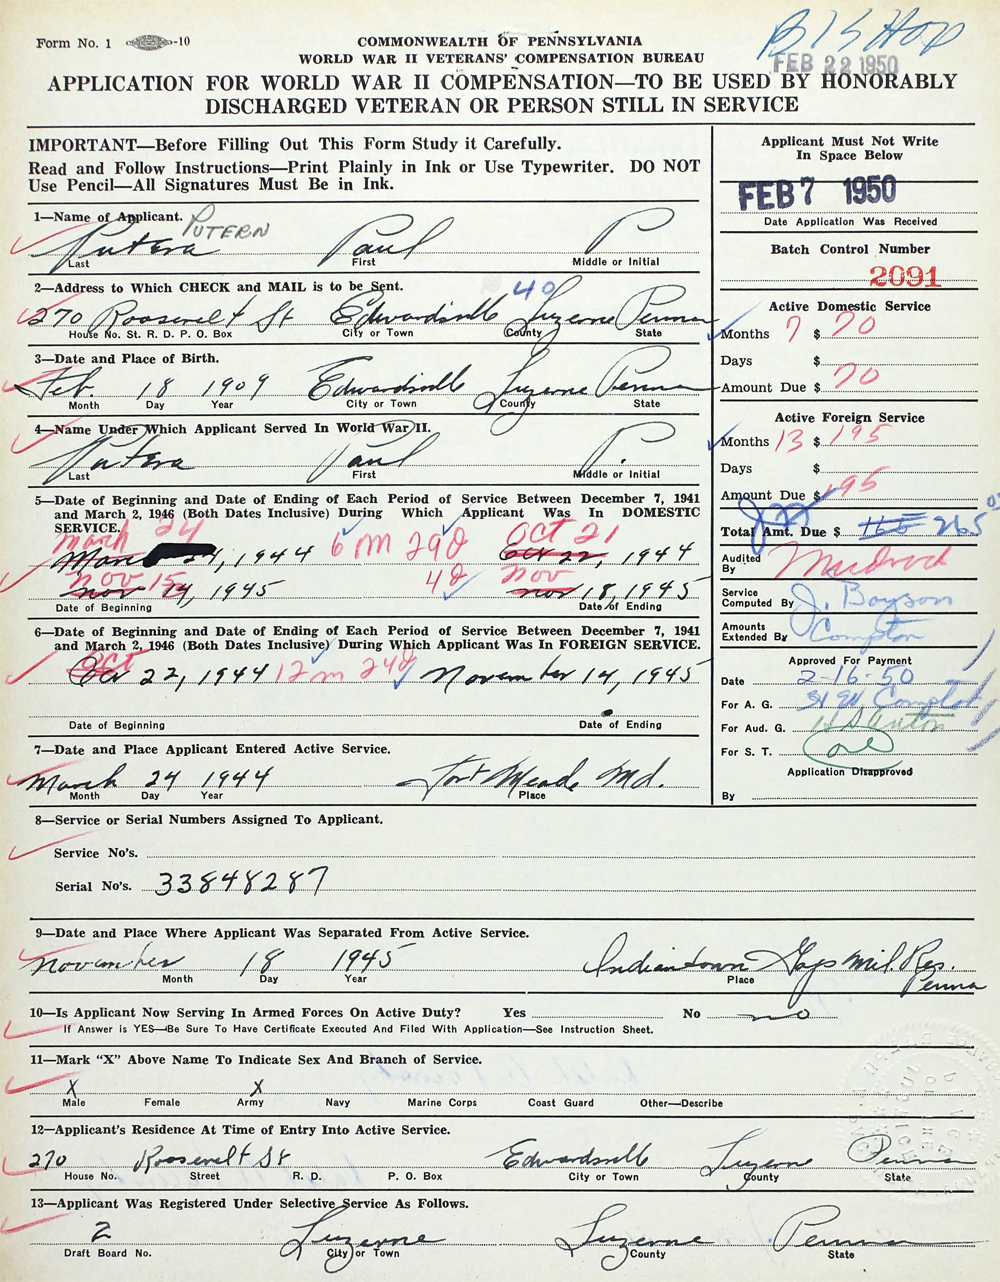 Form No. 1 -10
COMMONWEALTH OF PENNSYLVANIA
WORLD WAR II VETERANS' COMPENSATION BUREAU
BISHOP
FEB 22 1950
APPLICATION FOR WORLD WAR II COMPENSATION—TO BE USED BY HONORABLY
DISCHARGED VETERAN OR PERSON STILL IN SERVICE
IMPORTANT—Before Filling Out This Form Study it Carefully.
Read and Follow Instructions—Print Plainly in Ink or Use Typewriter. DO NOT
Use Pencil—All Signatures Must Be in Ink.
Applicant Must Not Write
In Space Below
FEB 7 1950
Date Application Was Received
Batch Control Number
2091
Active Domestic Service
Months 7 $ 70
Days $
Amount Due $ 70
Active Foreign Service
Months 13 $ 195
Days $
Amount Due $ 195
Total Amt. Due $ 165 265
Audited
By Murdock
Service
Computed By J. Boyson
Amounts
Extended By Compton
Approved For Payment
Date 2-16-50
For A. G.
For Aud. G.
For S. T.
Application Disapproved
By
1—Name of Applicant. PUTERN
Putera Paul P
Last First Middle or Initial
2—Address to Which CHECK and MAIL is to be Sent. 40
270 Roosevelt St Edwardsville Luzerne Penna
House No. St. R. D. P. O. Box City or Town County State
3—Date and Place of Birth.
Feb. 18 1909 Edwardsville Luzerne Penna
Month Day Year City or Town County State
4—Name Under Which Applicant Served In World War II.
Putera Paul P.
Last First Middle or Initial
5—Date of Beginning and Date of Ending of Each Period of Service Between December 7, 1941
and March 2, 1946 (Both Dates Inclusive) During Which Applicant Was In DOMESTIC
SERVICE.
March 24 Oct 21
24, 1944 6m 29d Oct 22, 1944
Nov 15 4d Nov
Nov 14, 1945 Nov 18, 1945
Date of Beginning Date of Ending
6—Date of Beginning and Date of Ending of Each Period of Service Between December 7, 1941
and March 2, 1946 (Both Dates Inclusive) During Which Applicant Was In FOREIGN SERVICE.
Oct
22, 1944 12m 24d November 14, 1945
Date of Beginning Date of Ending
7—Date and Place Applicant Entered Active Service.
March 24 1944 Fort Meade Md.
Month Day Year Place
8—Service or Serial Numbers Assigned To Applicant.
Service No's.
Serial No's. 33848287
9—Date and Place Where Applicant Was Separated From Active Service.
November 18 1945 Indiantown Gap Mil. Res.
Penna
Month Day Year Place
10—Is Applicant Now Serving In Armed Forces On Active Duty? Yes No no
If Answer is YES—Be Sure To Have Certificate Executed And Filed With Application—See Instruction Sheet.
11—Mark "X" Above Name To Indicate Sex And Branch of Service.
X X
Male Female Army Navy Marine Corps Coast Guard Other—Describe
12—Applicant's Residence At Time of Entry Into Active Service.
270 Roosevelt St Edwardsville Luzerne Penna
House No. Street R. D. P. O. Box City or Town County State
13—Applicant Was Registered Under Selective Service As Follows.
2 Luzerne Luzerne Penna
Draft Board No. City or Town County State